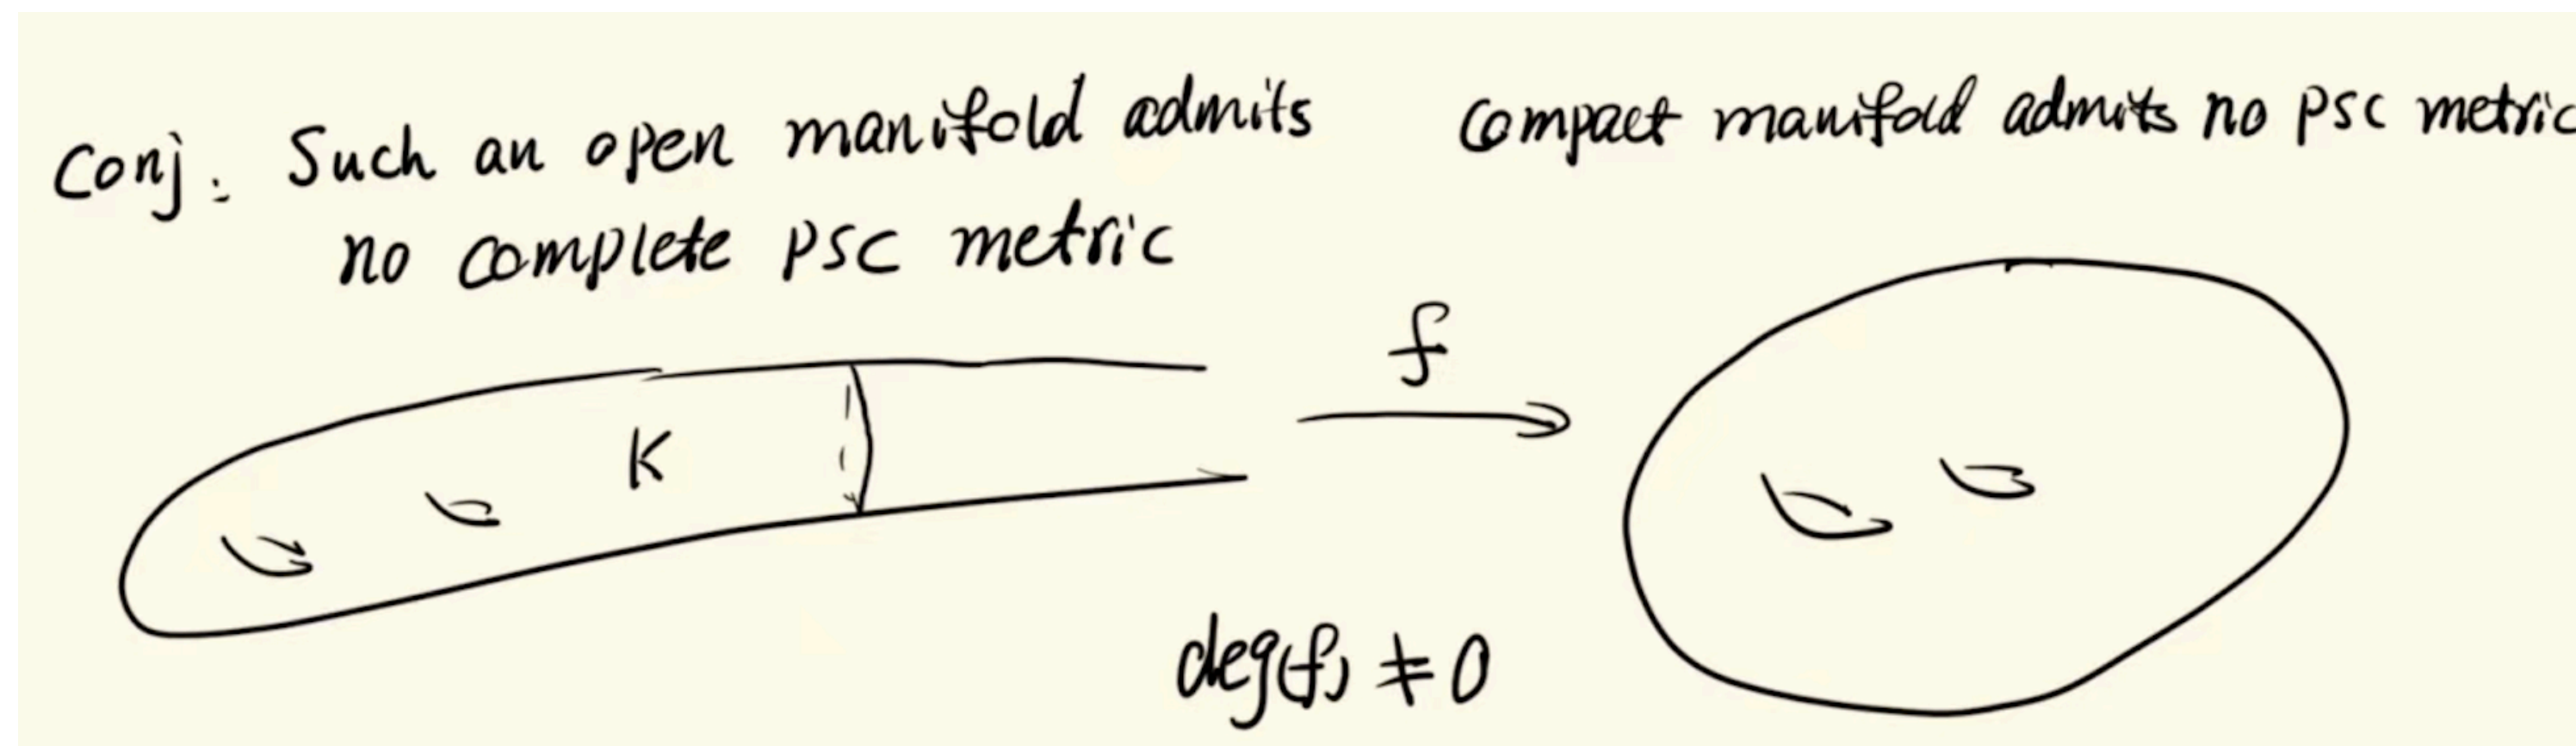 Conj: Such an open manifold admits
no complete psc metric
compact manifold admits no psc metric
f
K
deg(f) ≠ 0